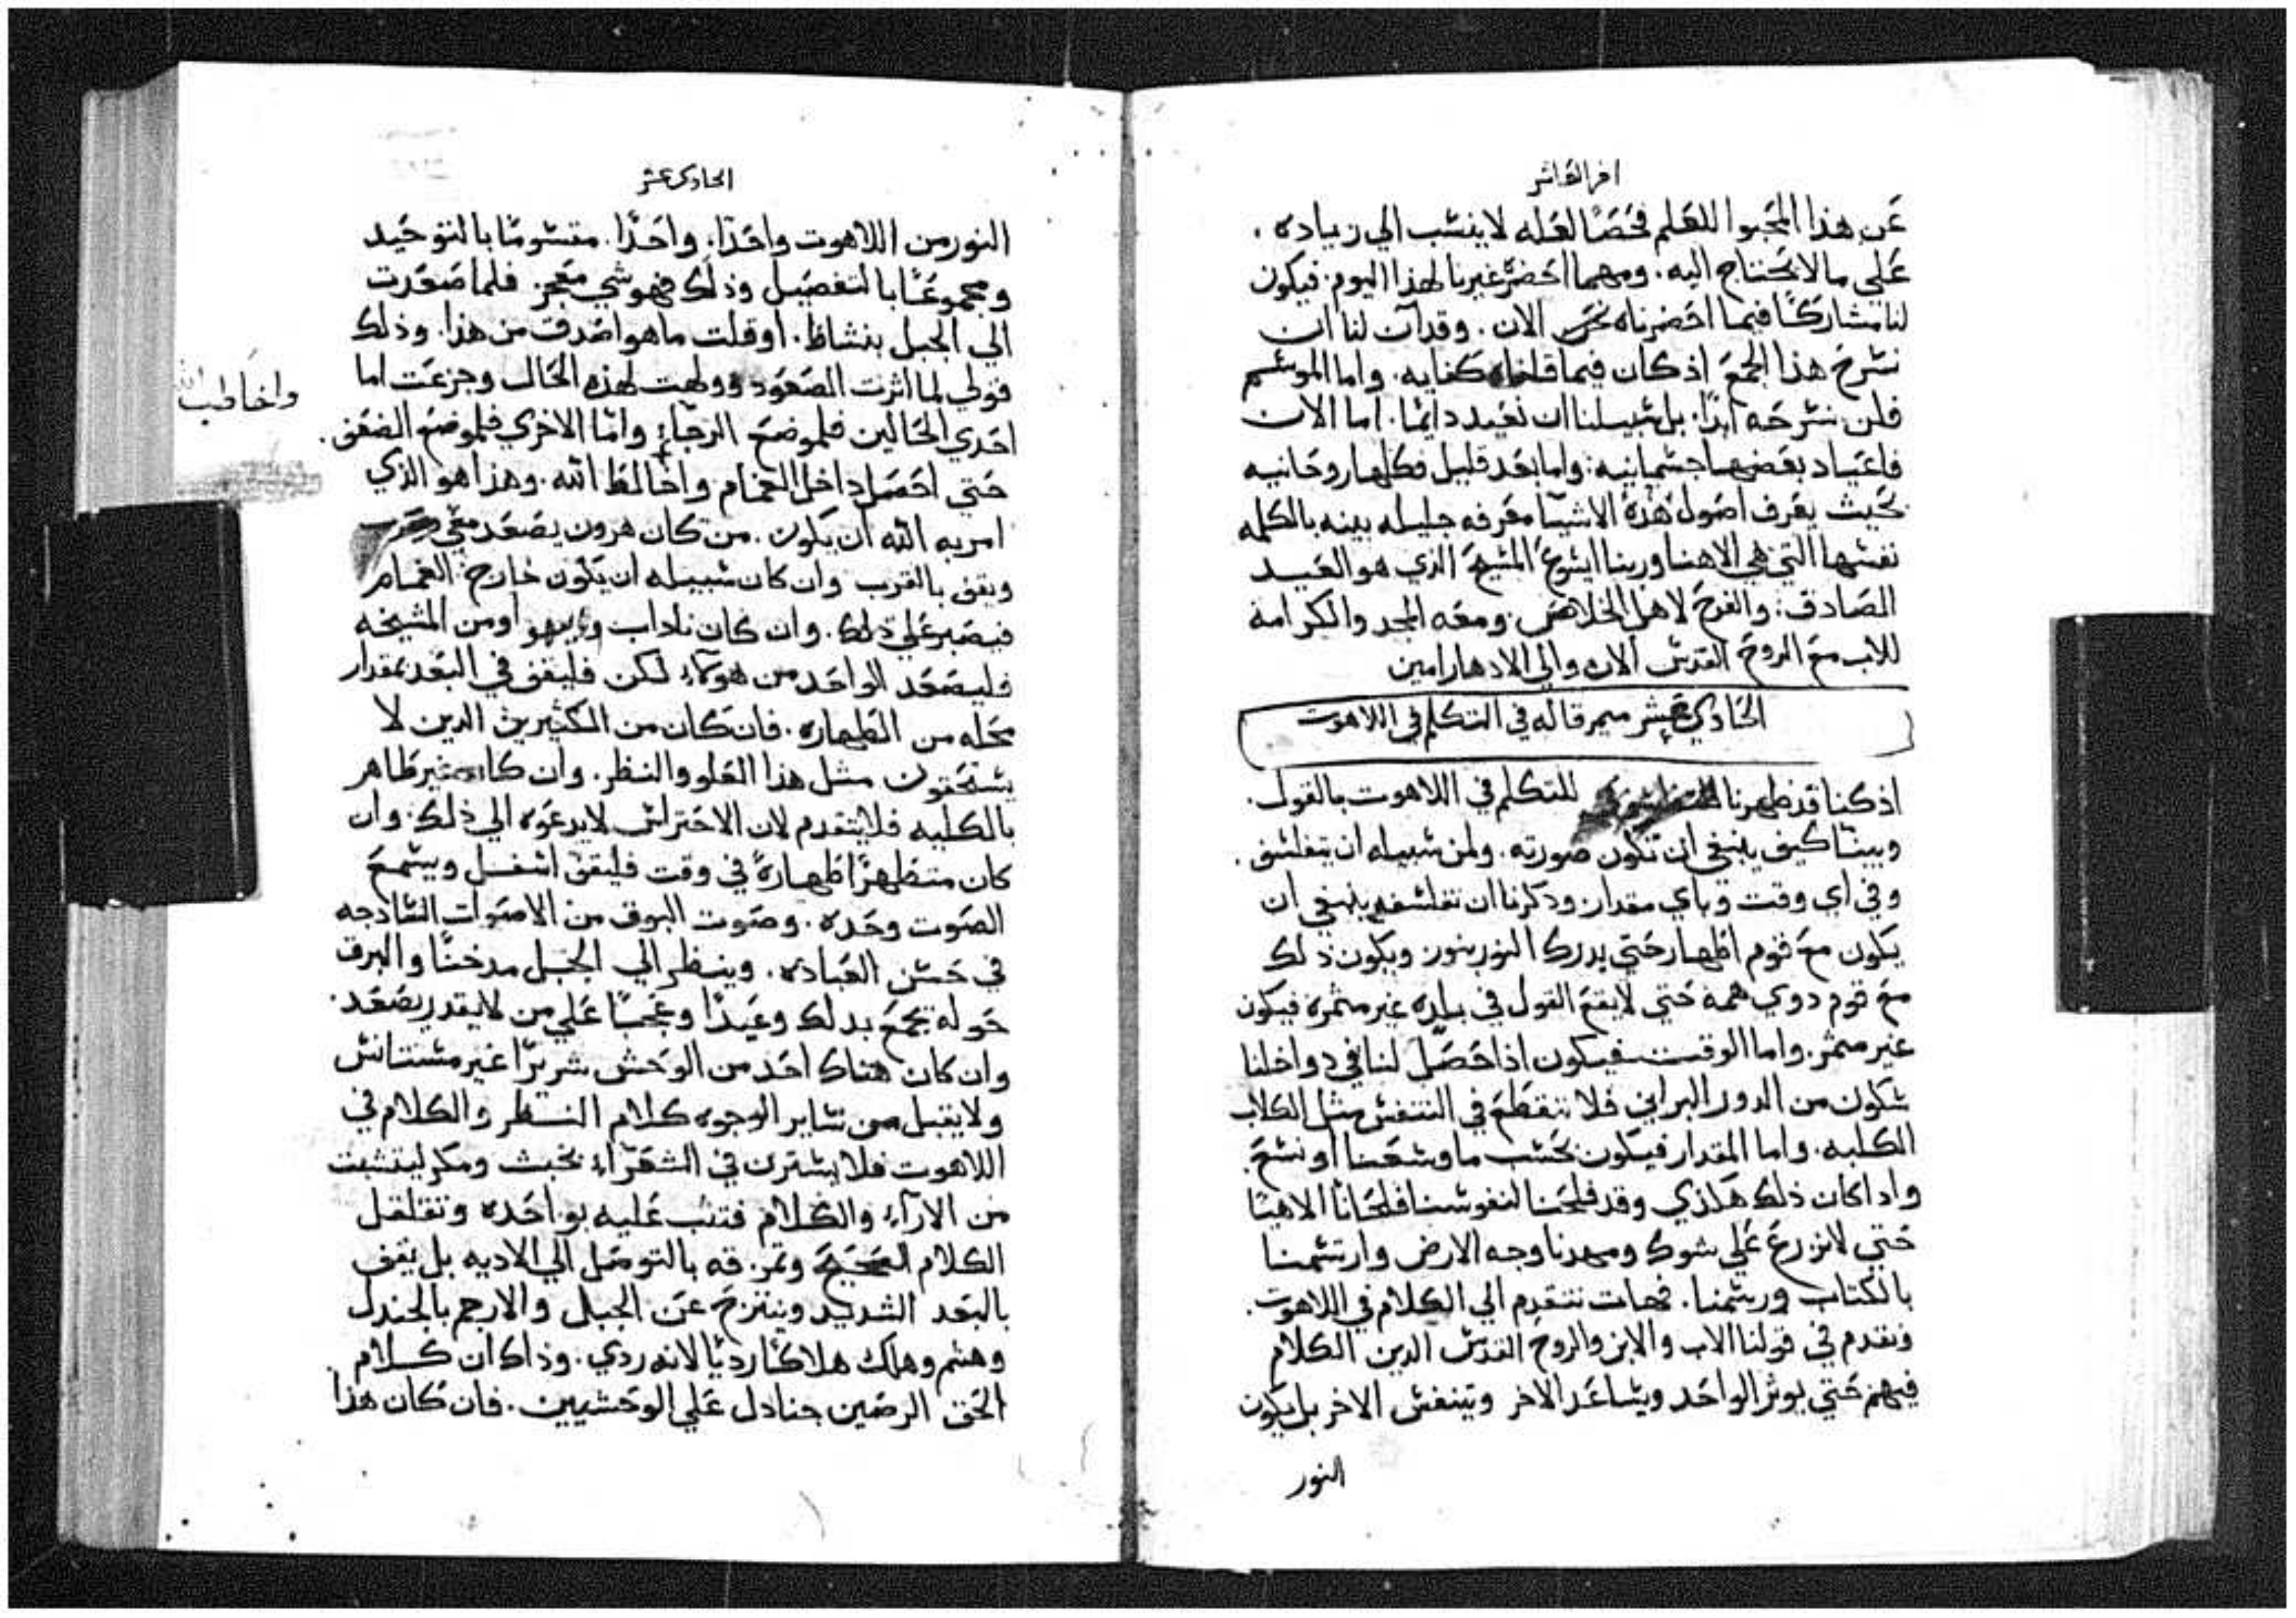 اخر العاشر
عن هذا المحبوا للعلم فحصًا لعله لا ينسب الي زياده .
علي ما لا يحتاج اليه . ومهما احضر غيرنا لهذا اليوم . فيكون
لنا مشاركًا فيما احضرناه نحن الان . وقد آن لنا ان
نشرح هذا الجمع اذ كان فيما قلناه كفايه . واما الموسم
فلن نشرحه ابدًا . بل سبيلنا ان نعيد دايمًا . اما الان
فاعياد بعضها جسمانيه : واما بعد قليل فكلها روحانيه
بحيث يعرف اصول هذه الاشيا معرفه جليله بينه بالكلمه
نفسها التي هي الاهنا وربنا ايسوع المسيح الذي هو العيد
الصادق : والفرح لاهل الخلاص . ومعه المجد والكرامة
للاب مع الروح القدس الان والي الادهار امين
الحادي عشر ميمر قاله في التكلم في اللاهوت
اذ كنا قد طهرنا للتكلم في اللاهوت بالقول .
وبينا كيف ينبغي ان تكون صورته . ولمن سبيله ان يتفلسف .
وفي اي وقت وباي مقدار . وذكرنا ان تفلسفه ينبغي ان
يكون مع قوم اطهار حتي يدرك النور بنور ويكون ذلك
مع قوم دوي همة حتي لا يقع القول في بلده غير مثمره فيكون
غير مثمر . واما الوقت فيكون اذا حصل لنا في دواخلنا
سكون من الدور البراني فلا ننقطع في التنفس مثل الكلاب
الكلبه . واما المقدار فيكون بحسب ما وسعنا او نسع .
وادا كان ذلك هكذي وقد فلحنا لنفوسنا فلحانًا الاهيًا
حتي لا نزرع علي شوك ومهدنا وجه الارض وارتسمنا
بالكتاب ورسمنا . فهات نتقدم الي الكلام في اللاهوت .
ونقدم في قولنا الاب والابن والروح القدس الدين الكلام
فيهم حتي يوثر الواحد ويساعد الاخر ويتنفس الاخر بل يكون
النور
الحادي عشر
النور من اللاهوت واحدًا . واحدًا . مقسومًا بالتوحيد
ومجموعًا بالتفصيل وذلك فهو شي معجز . فلما صعدت
الي الجبل بنشاط . او قلت ما هو اصدق من هذا . وذلك
قولي لما اثرت الصعود وولهت لهذه الحال وجزعت اما
احدي الحالين فلموضع الرجاء واما الاخري فلموضع الضعف .
حتي احصل داخل الغمام واخالط الله . وهذا هو الذي
واخاطب الله
امر به الله ان يكون . من كان هرون يصعد معي
ويقف بالقرب وان كان سبيله ان يكون خارج الغمام
فيصبر علي ذلك . وان كان ناداب وابيهو او من المشيخه
فليصعد الواحد من هولاء لكن فليقف في البعد بمقدار
محله من الطهاره . فان كان من الكثيرين الدين لا
يستحقون مثل هذا العلو والنظر . وان كان غير طاهر
بالكليه فلا يتقدم لان الاحتراس لا يدعوه الي ذلك : وان
كان متطهرًا طهارةً في وقت فليقف اسفل ويسمع
الصوت وحده . وصوت البوق من الاصوات الساذجه
في حسن العباده . وينظر الي الجبل مدخنًا والبرق
حوله يجمع بدلك وعيدًا وعجبًا علي من لا يقدر يصعد .
وان كان هناك احد من الوحش شريرًا غير مستانس
ولا يقبل من ساير الوجوه كلام النظر والكلام في
اللاهوت فلا يسترن في الشعراء بخبث ومكر ليتشبت
من الاراء والكلام فتثب عليه بواحده وتقلقل
الكلام الصحيح وتمزقه بالتوصل الي الاديه بل يقف
بالبعد الشديد وينتزح عن الجبل والا رجم بالجندل
وهشم وهلك هلاكًا رديًا لانه ردي . وذاك ان كلام
الحق الرصين جنادل علي الوحشيين . فان كان هذا